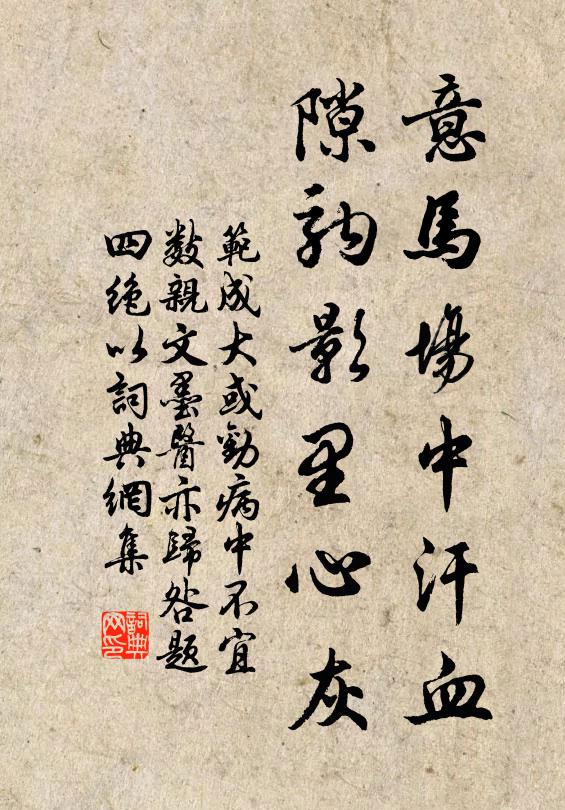 意馬場中汗血
隙駒影里心灰
範成大或勸病中不宜
數親文墨醫亦歸咎題
四絕以詞典網集
詞典
网印